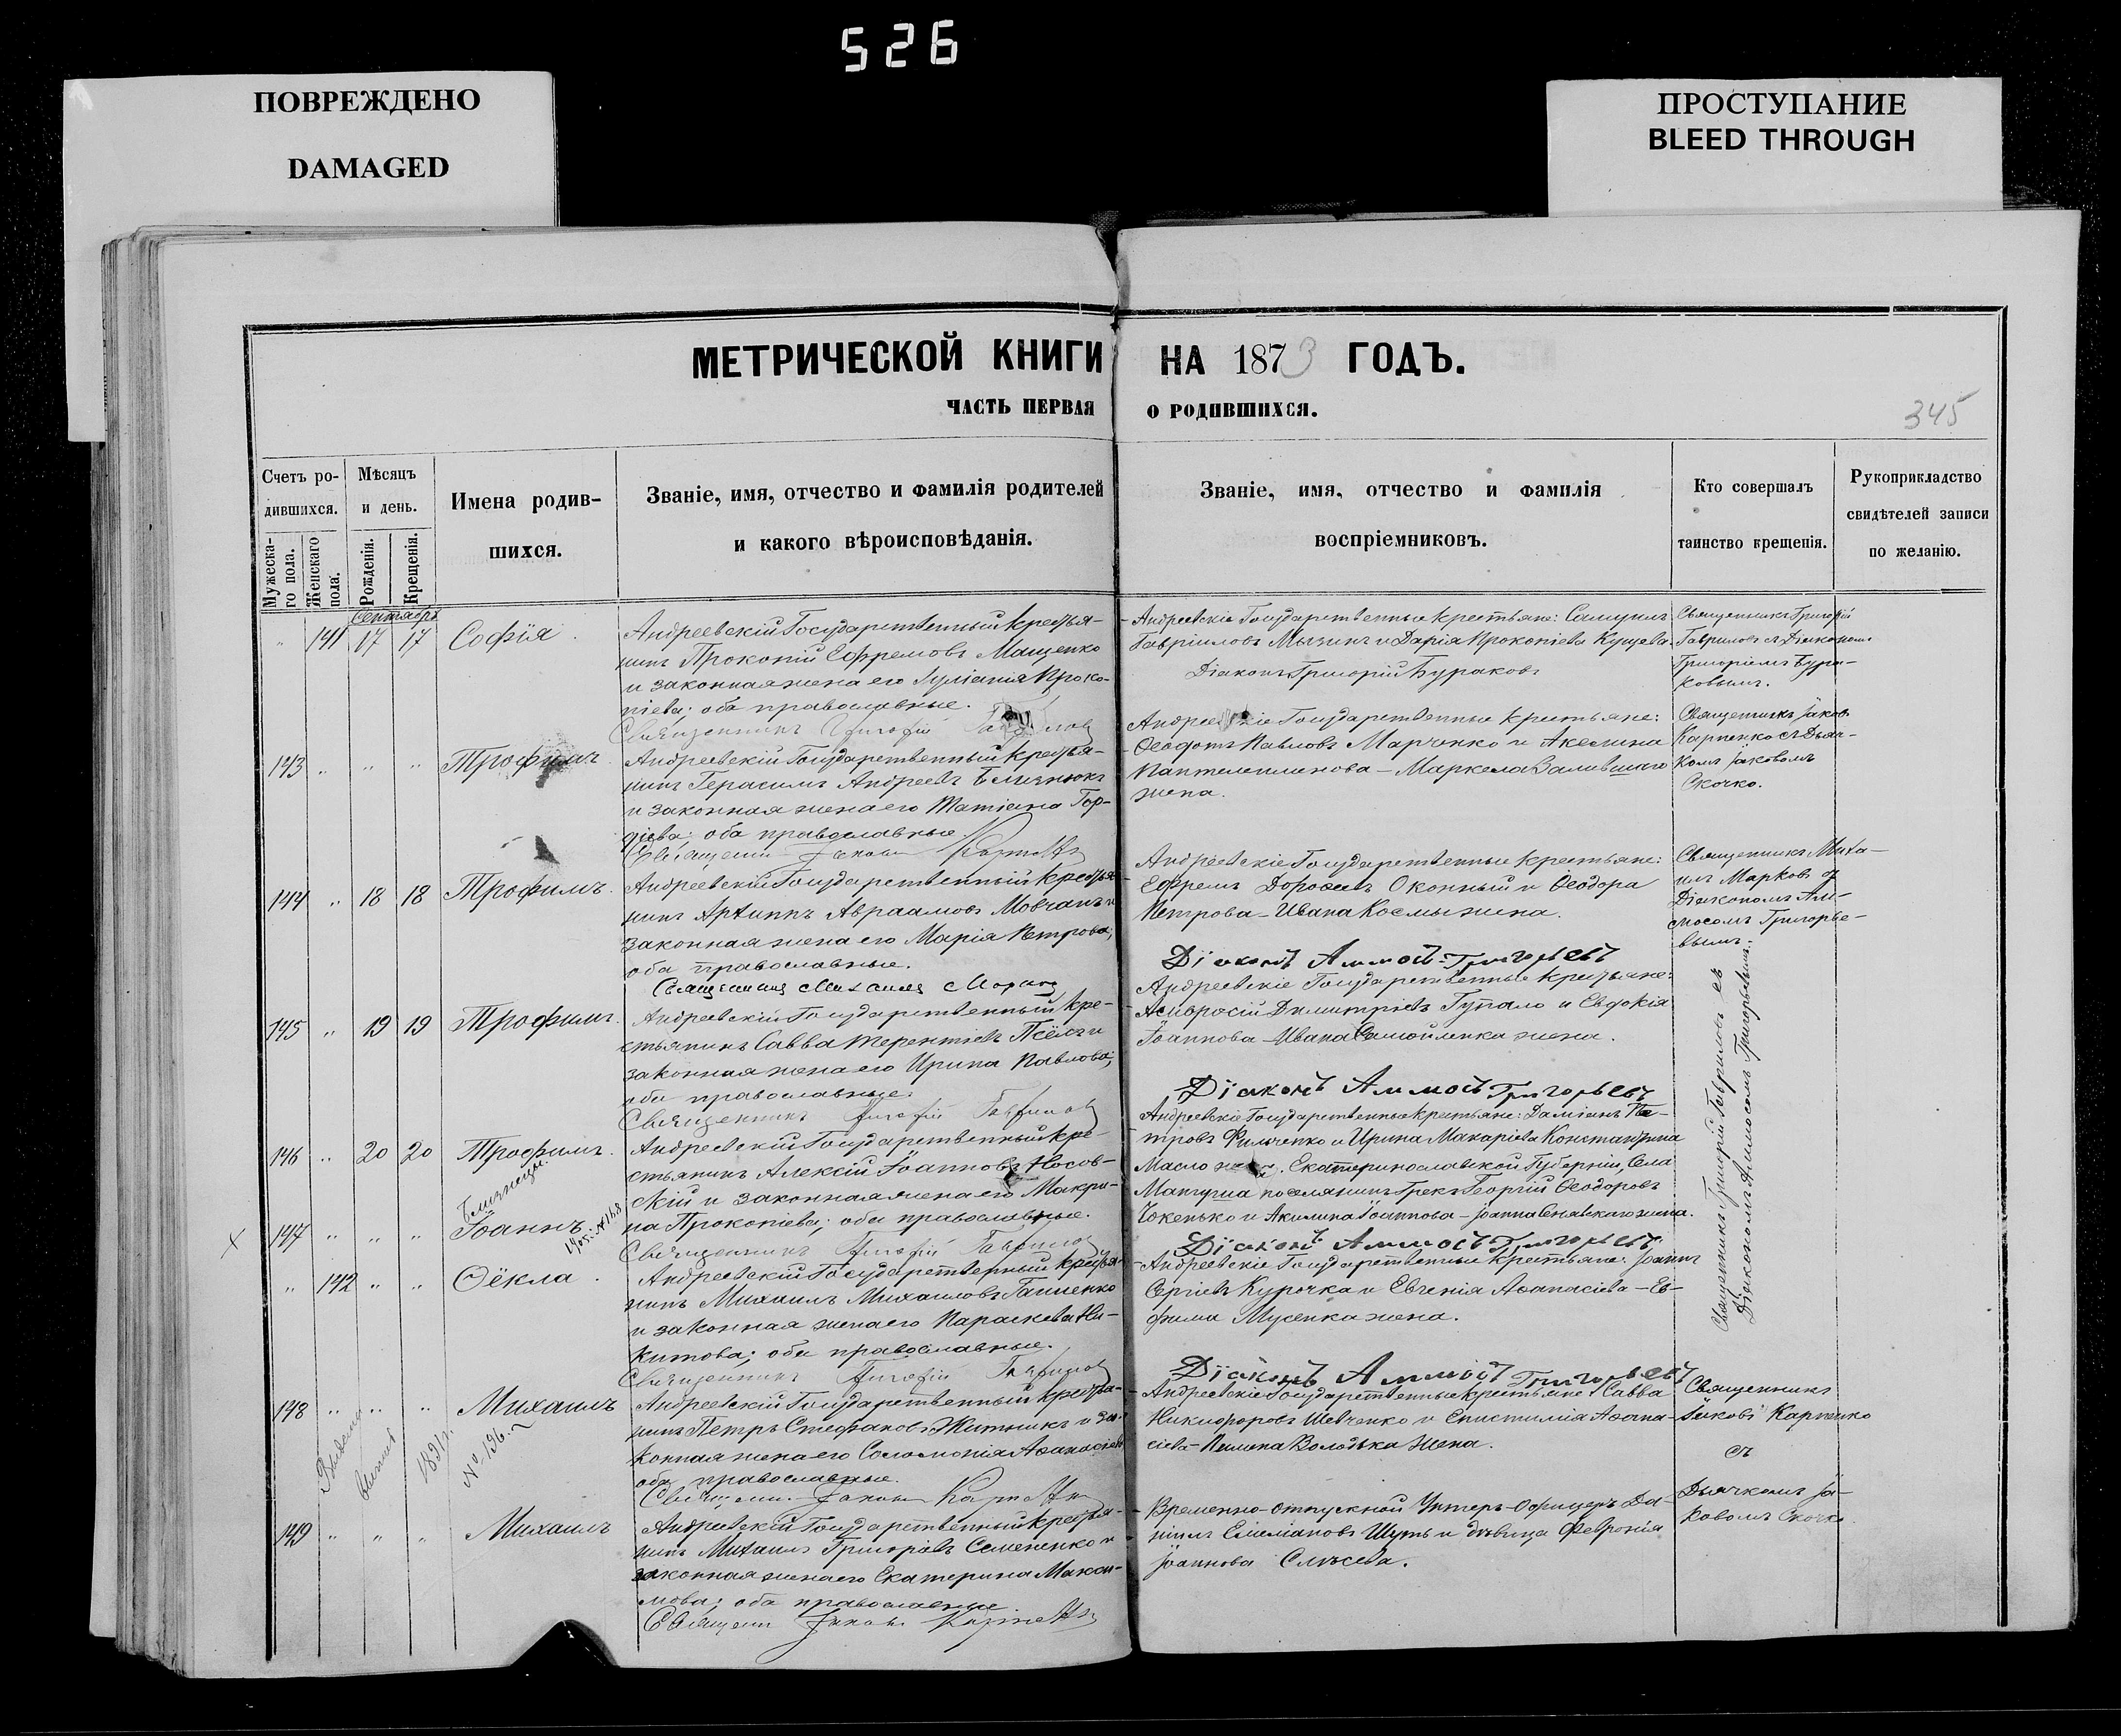 526
ПОВРЕЖДЕНО
DAMAGED
ПРОСТУПАНИЕ
BLEED THROUGH
МЕТРИЧЕСКОЙ КНИГИ НА 1873 ГОДЪ.
ЧАСТЬ ПЕРВАЯ О РОДИВШИХСЯ.
345
Счетъ ро-
дившихся.
Мужеска-
го пола.
Женскаго
пола.
Мѣсяцъ
и день.
Рожденія.
Крещенія.
Имена родив-
шихся.
Званіе, имя, отчество и фамилія родителей
и какого вѣроисповѣданія.
Званіе, имя, отчество и фамилія
воспріемниковъ.
Кто совершалъ
таинство крещенія.
Рукоприкладство
свидѣтелей записи
по желанію.
Сентябрь
" 141 17 17 Софія
Андреевскій Государственный крестья-
нинъ Прокопій Ефремовъ Мащенко
и законная жена его Іуліанія Проко-
піева; оба православные.
Священникъ Григорій Гавриловъ
Андреевскіе Государственные крестьяне: Самуилъ
Гавріиловъ и Дарія Прокопіева Куцева
Діаконъ Григорій Бураковъ
Священникъ Григорій
Гавриловъ съ Діакономъ
Григоріемъ Бура-
ковымъ.
143 " " " Трофимъ
Андреевскій Государственный крестья-
нинъ Герасимъ Андреевъ
и законная жена его Татіана Гор-
діева; оба православные.
Священникъ Іаковъ Карпенко
Андреевскіе Государственные крестьяне:
Ѳеодотъ Павловъ Марченко и Акелина
Пантелеимонова – Маркела
жена.
Священникъ Іаковъ
Карпенко съ Дьяч-
комъ Іаковомъ
Скочко.
144 " 18 18 Трофимъ
Андреевскій Государственный крестья-
нинъ Архиппъ Авраамовъ Мовчанъ и
законная жена его Марія Петрова;
оба православные.
Священникъ Михаилъ Марковъ
Андреевскіе Государственные крестьяне:
Ефремъ Дороѳеевъ Оконный и Ѳеодора
Петрова – Ивана Космы жена.
Діаконъ Аммосъ Григорьевъ
Священникъ Миха-
илъ Марковъ съ
Діакономъ Ам-
мосомъ Григорье-
вымъ.
145 " 19 19 Трофимъ
Андреевскій Государственный кре-
стьянинъ Савва Терентіевъ Псёлъ и
законная жена его Ирина Павлова;
оба православные.
Священникъ Григорій Гавриловъ
Андреевскіе Государственные крестьяне:
Амвросій Димитріевъ Гупало и Евдокія
Іоаннова – Ивана Самойленка жена.
Діаконъ Аммосъ Григорьевъ
Священникъ Григорій Гавриловъ съ
Діакономъ Аммосомъ Григорьевымъ.
146 " 20 20 Трофимъ
Андреевскій Государственный кре-
стьянинъ Алексій Іоанновъ Носов-
скій и законная жена его Макри-
на Прокопіева; оба православные.
Священникъ Григорій Гавриловъ
Андреевскіе Государственные крестьяне: Даміанъ Пе-
тровъ Фильченко и Ирина Макаріева Константина
Масло жена. Екатеринославской Губерніи, Села
Мангуша поселянинъ Грекъ Георгій Ѳеодоровъ
и Акилина Іоаннова – Іоанна жена.
Діаконъ Аммосъ Григорьевъ
Близнецы
147 " " " Іоаннъ
" 142 " " Ѳёкла
Андреевскій Государственный крестья-
нинъ Михаилъ Михаиловъ Гапненко
и законная жена его Параскева Ни-
китова; оба православные.
Священникъ Григорій Гавриловъ
Андреевскіе Государственные крестьяне: Іоаннъ
Сергіевъ Курочка и Евгенія Аѳанасіева – Ев-
фима Мусенка жена.
Діаконъ Аммосъ Григорьевъ
148 " " " Михаилъ
1891 г.
№ 196.
Андреевскій Государственный крестья-
нинъ Петръ Стефановъ Житникъ и за-
конная жена его Соломонія Аѳанасіева
оба православные.
Священникъ Іаковъ Карпенко
Андреевскіе Государственные крестьяне: Савва
Никифоровъ Шевченко и Епистимія Аѳана-
сіева – Пимена Володька жена.
Священникъ
Іаковъ Карпенко
съ
Дьячкомъ Іа-
ковомъ Скочко
149 " " " Михаилъ
Андреевскій Государственный крестья-
нинъ Михаилъ Григоріевъ Семененко и
законная жена его Екатерина Макси-
мова; оба православные
Священникъ Іаковъ Карпенко
Временно-отпускной Унтеръ-офицеръ Да-
ніилъ Емеліановъ Шуть и дѣвица Февронія
Іоаннова